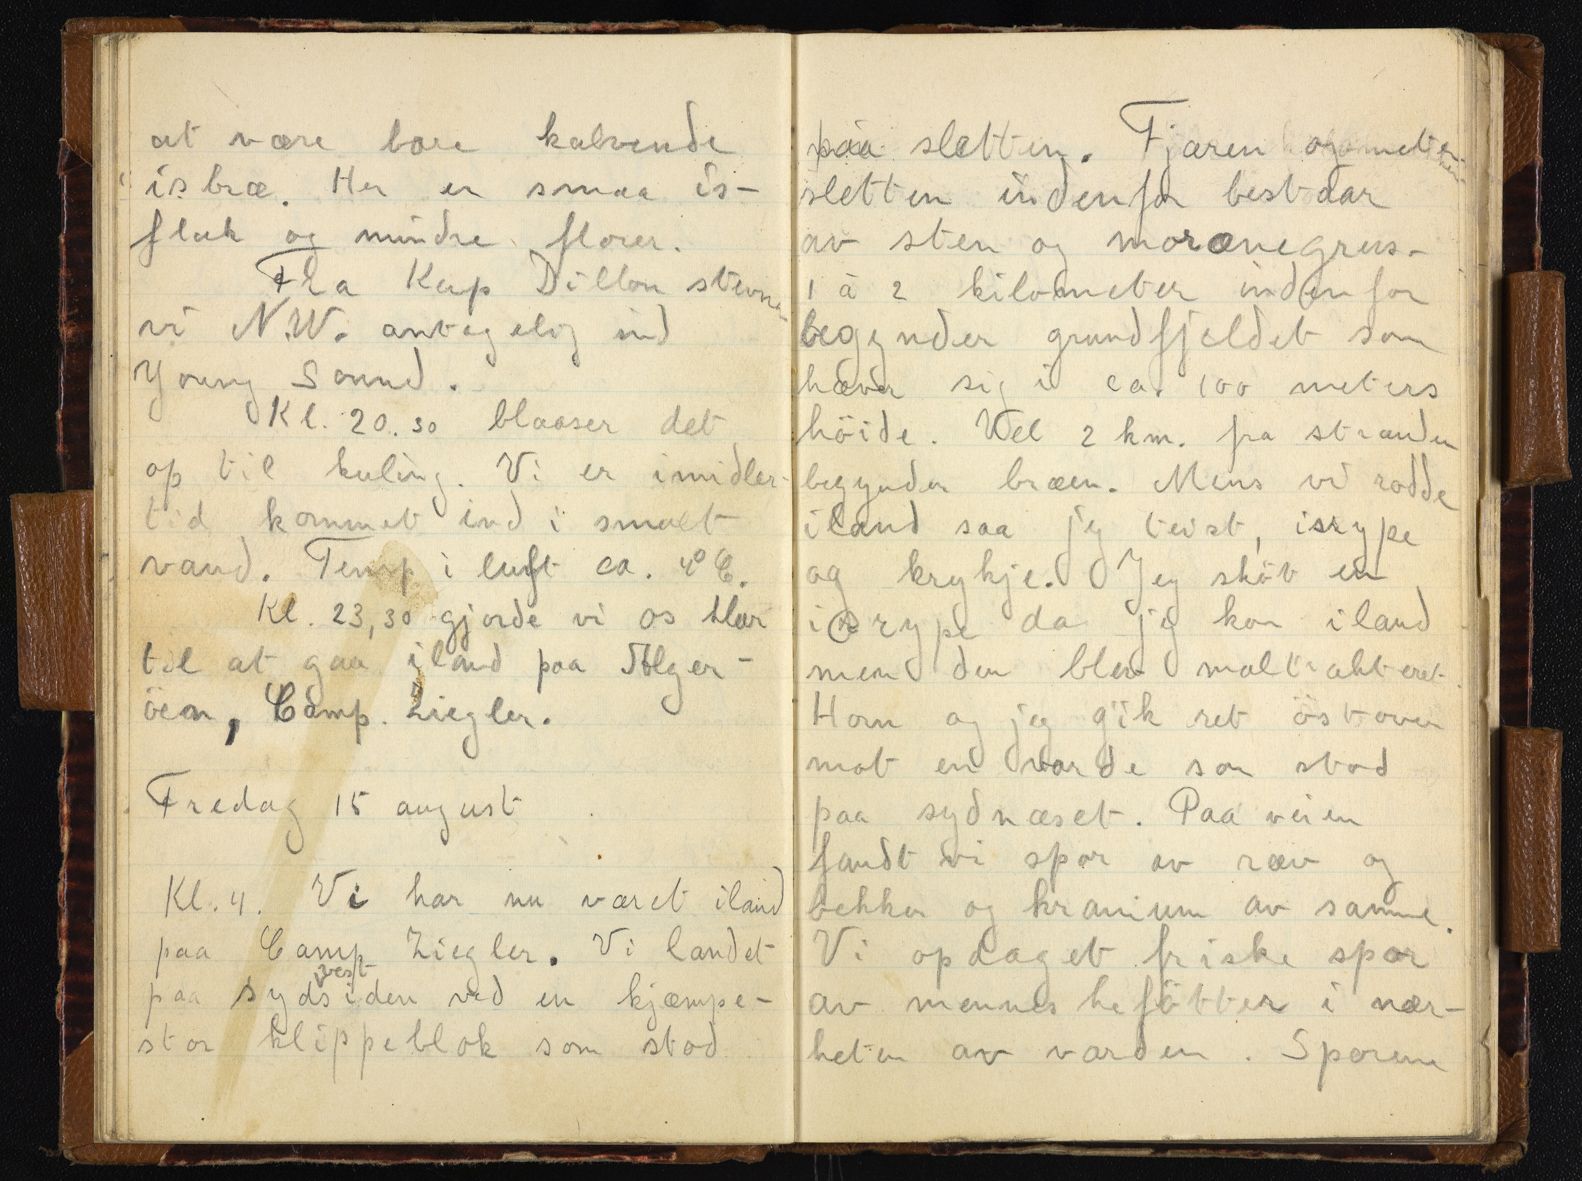 at være bare kalvende
isbræ. Her er smaa is-
flak og mindre floer.
Fra Kap Dillon stevner
vi N.W. antagelig ind
Young Sound.
Kl. 20.30 blaaser det
op til kuling. Vi er imidler-
tid kommet ind i smalt
vand. Temp i luft ca. 4° C.
Kl. 23,30 gjorde vi os klar
til at gaa iland paa Alger-
öen, Camp. Ziegler.
Fredag 15 august
Kl. 4. Vi har nu været iland
paa Camp Ziegler. Vi landet
paa sydvestsiden ved en kjæmpe-
stor klippeblok som stod
paa sletten. Fjæren og
sletten indenfor bestaar
av sten og morænegrus.
1 à 2 kilometer indenfor
begynder grundfjeldet som
hæver sig i ca. 100 meters
höide. Vel 2 km. fra stranden
begynder bræen. Mens vi rodde
iland saa jeg teist, isrype
og krykje. Jeg sköt en
isrype da jeg kom iland
men den blev maltrakteret.
Horn og jeg gik ret östover
mot en varde som stod
paa sydnæset. Paa veien
fandt vi spor av ræv og
bekker og kranium av samme.
Vi opdaget friske spor
av menneskefötter i nær-
heten av varden. Sporene